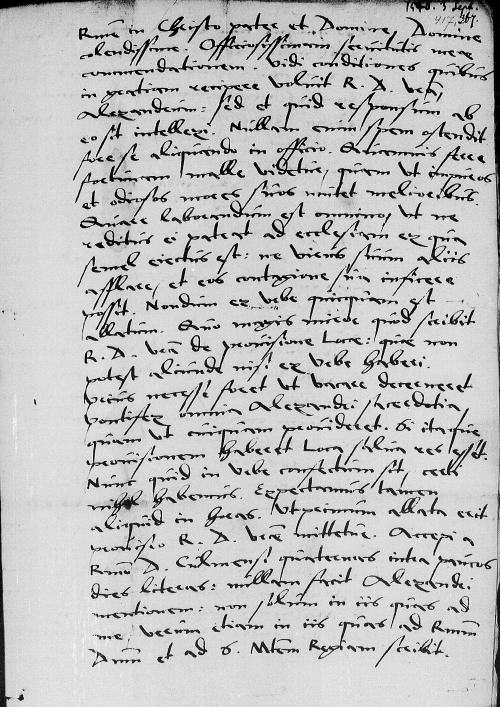 1540. 3 Sept.
417, 367.
Rme in Christo pater et Domine, Domine
colendissime. Officiosissimam servitutis meae
commendationem. Vidi conditiones quibus
in gratiam recipere voluit R. D. Vra
Alexandrum: sed et quid responsum ab
eo sit intellexi. Nullam enim spem ostendit
fore se aliquando in officio. Quamvis fere
fortunam malle videtur, quam ut improbos
et odiosos mores suos mutet melioribus.
Quare laborandum est omnino, ut ne
reditus ei pateat ad ecclesiam ex qua
semel eiectus est: ne virus suum aliis
afflare, et eos contagione sua inficere
possit. Nondum ex Urbe quicquam est
allatum. Quo magis miror quod scribit
R. D. Vra de provisione Loca: quae non
potest aliunde nisi ex Urbe haberi.
Prius necesse foret ut vacare decerneret
pontifex omnia Alexandri sacerdotia
quam ut cuiquam provideret. Si itaque
provisionem haberet Loca salva res esset.
Nunc quid in Urbe confectum sit, certi
nihil habemus. Expectamus tamen
aliquid in horas. Ut primum allata erit
provisio R. D. Vrae mittetur. Accepi a
Rmo D. Culmensi quaternas intra paucos
dies literas: nullam facit Alexandri
mentionem: non solum in iis quas ad
me, verum etiam in iis quas ad Rmum
Dnum et ad S. Mtem Regiam scribit.